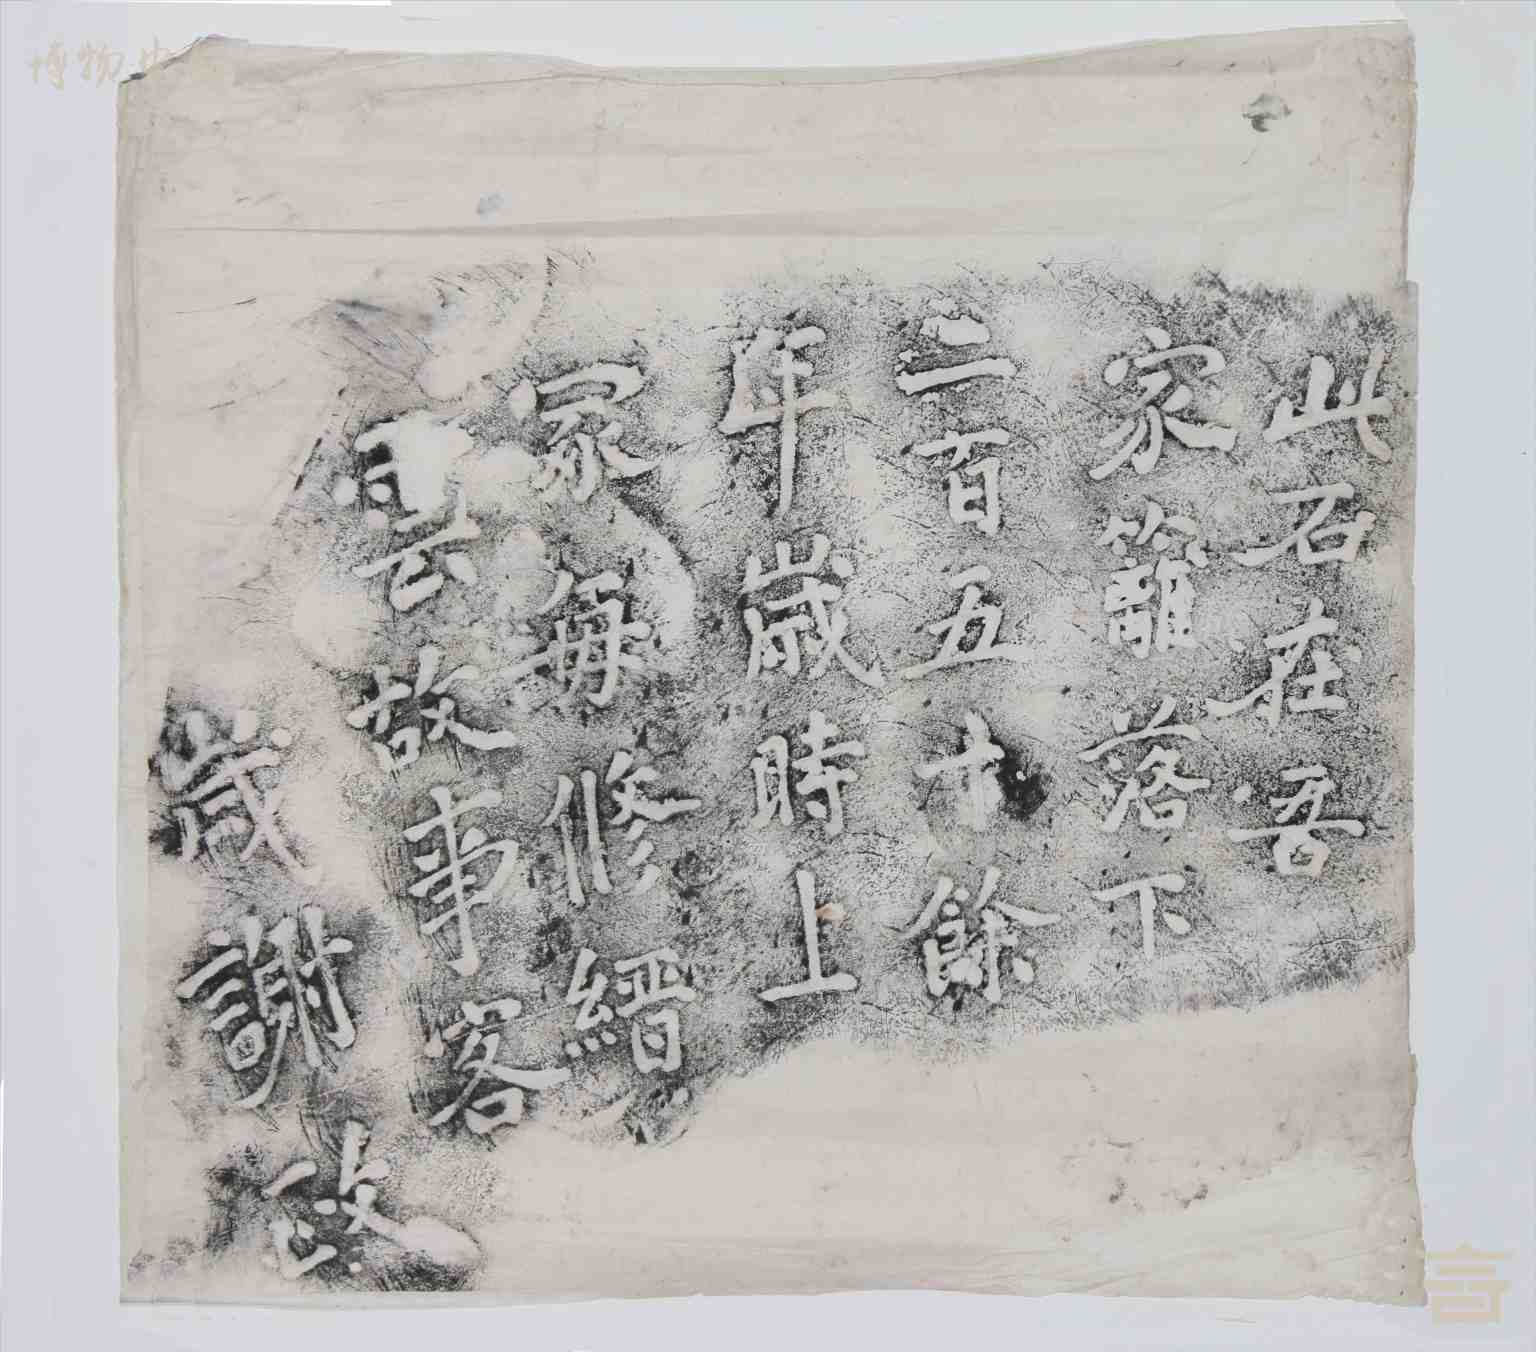 此石在吾
家籬落下
二百五十餘
年歲時上
冢每修縉
雲故事客
歲謝政
博物